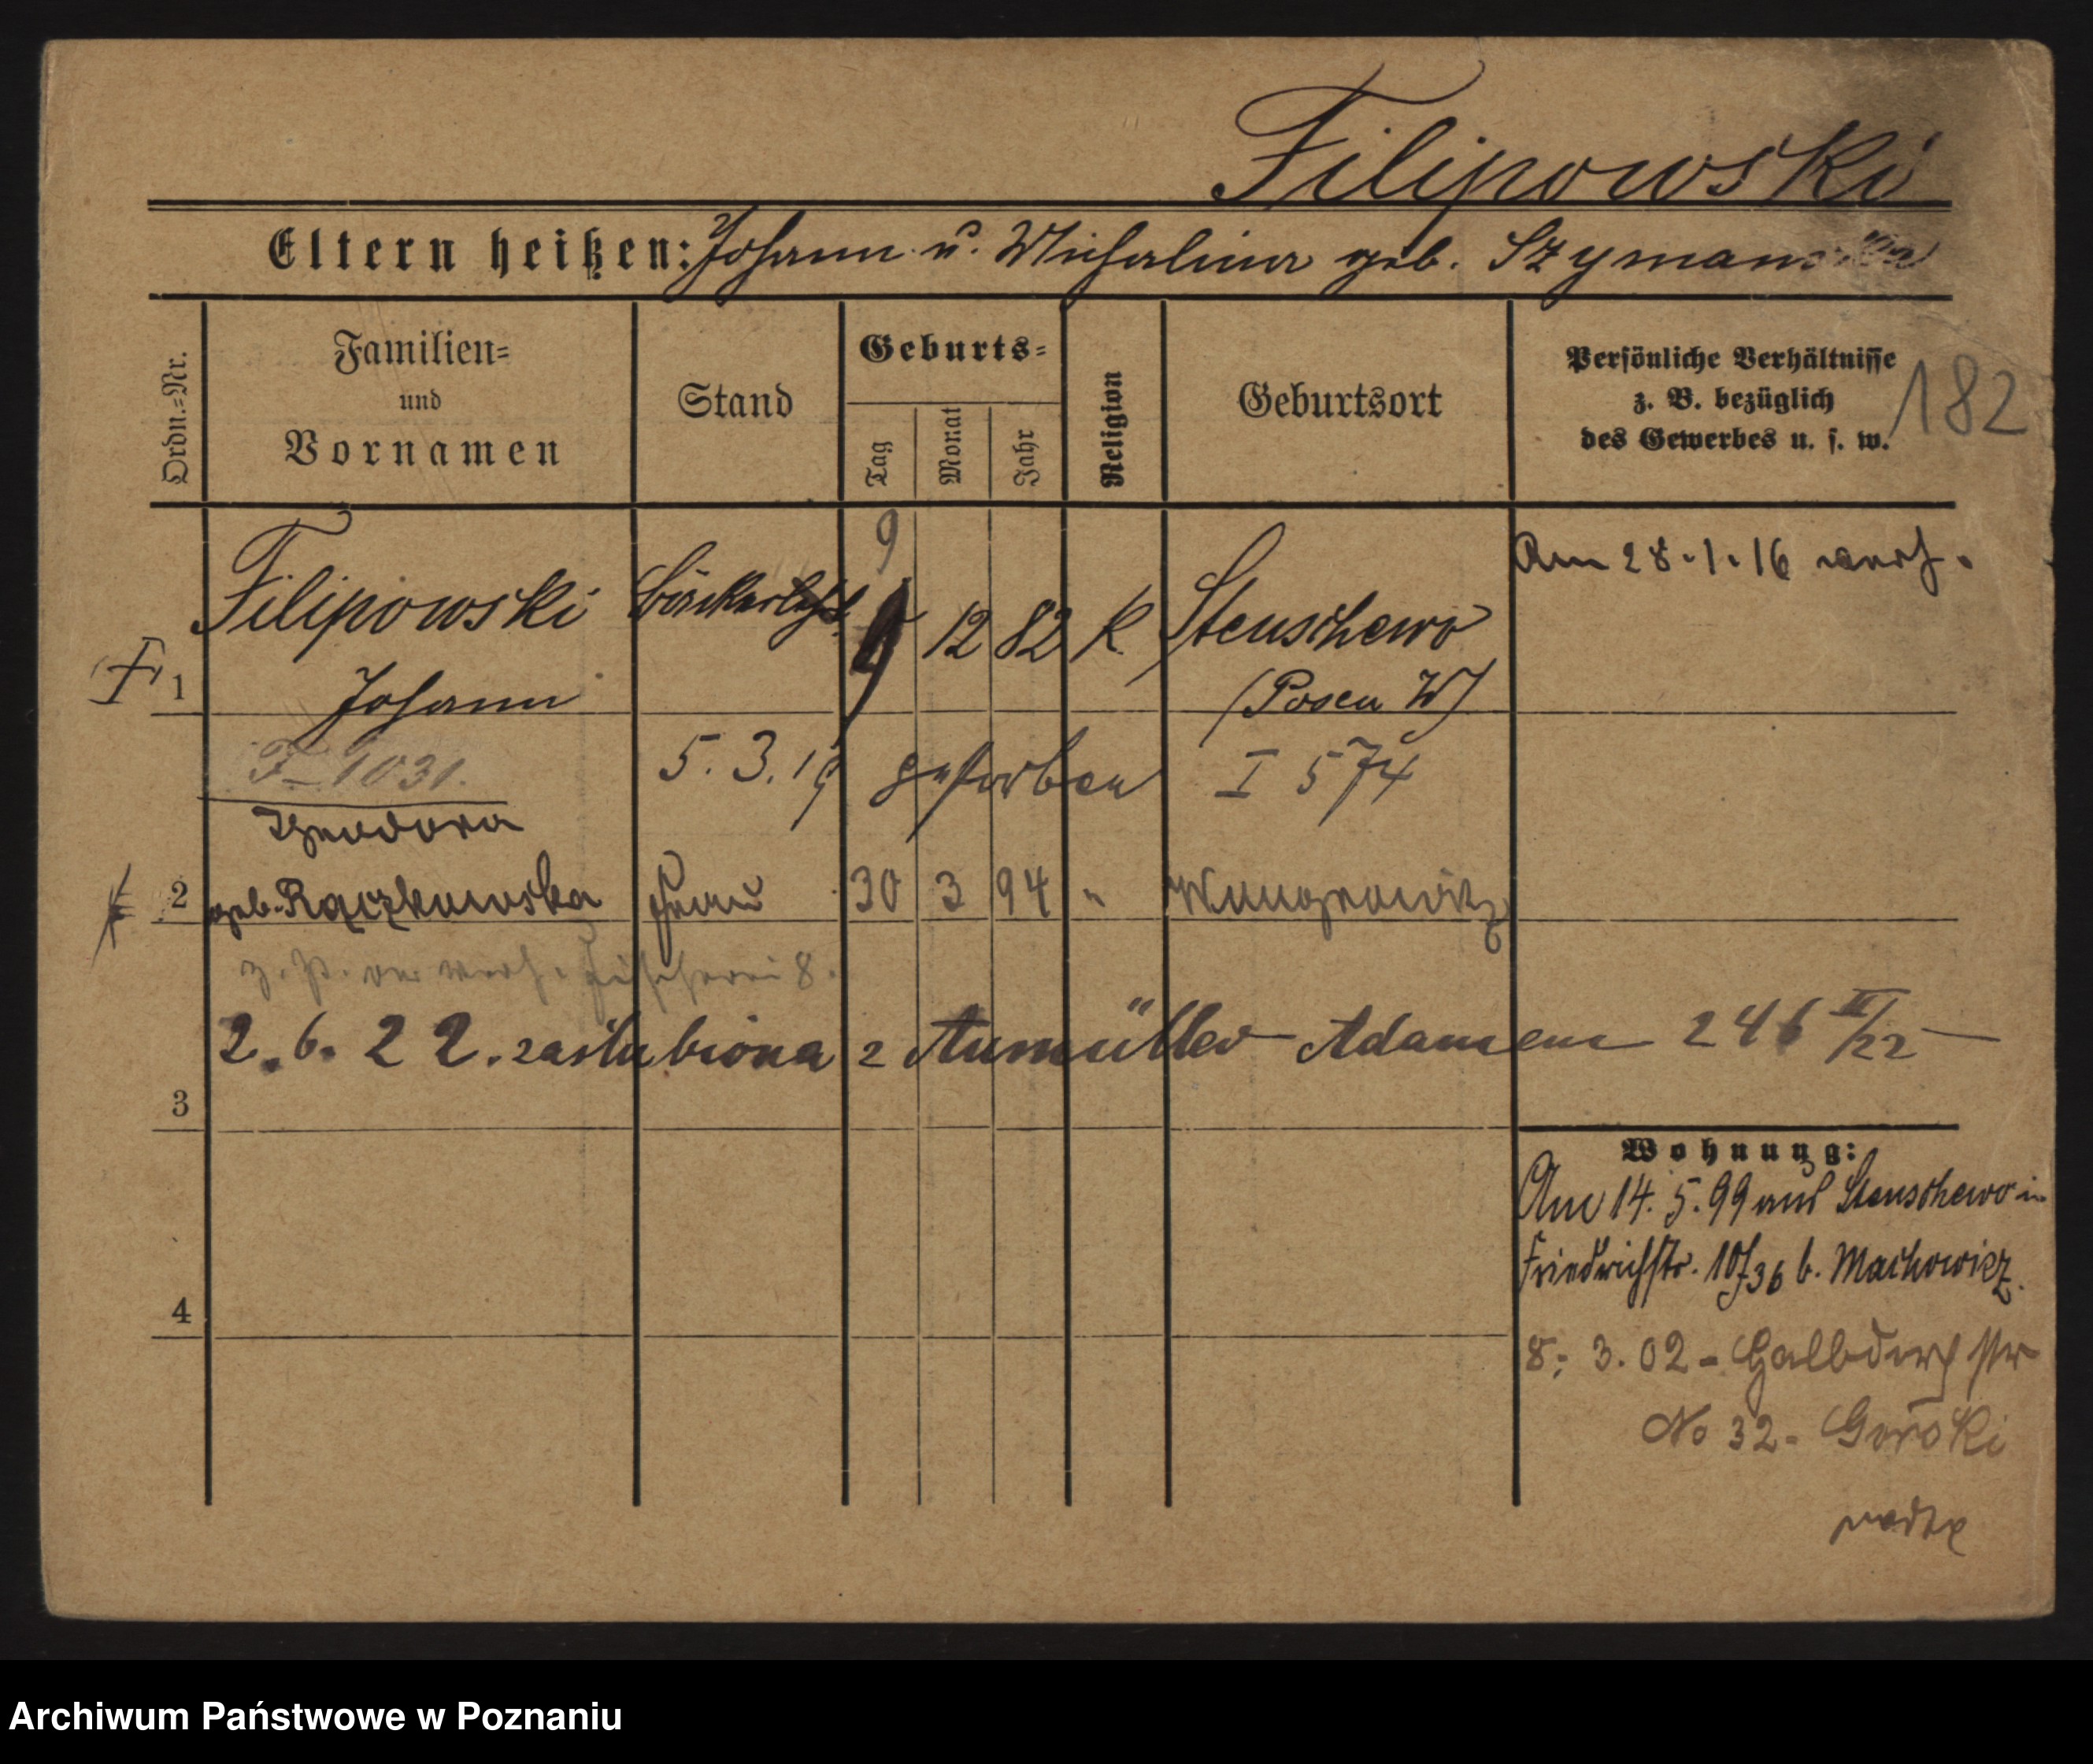 Filipowski
Eltern heißen: Johann u. Michalina geb. Szymanska
Ordn.=Nr.
Familien=
und
Vornamen
Stand
Geburts=
Tag
Monat
Jahr
Religion
Geburtsort
Persönliche Verhältnisse
z. B. bezüglich
des Gewerbes u. s. w.
182
9
Filipowski Bäckerlehrl. 9 12 82 K Stenschewo
Am 28.1.16 verh.
1 Johann (Posen W)
F 1031. 5.3.19 gestorben I 574
Theodora
2 geb. Rączkowska Frau 30 3 94 " Wongrowitz
z. P. verh. Fischerei 8.
2.6.22. zaślubiona z Aumüller Adamem 246 II/22
3
Wohnung:
Am 14.5.99 aus Stenschewo in
Friedrichstr. 10/36 b. Machowicz.
4
8.3.02 - Halbdorfstr
No 32 - Gorski